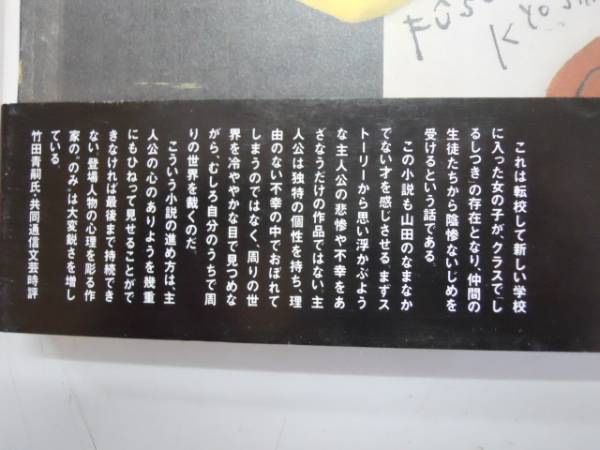 FÛSO
KYOSHI
これは転校して新しい学校
に入った女の子が、クラスで「し
るしつき」の存在となり、仲間の
生徒たちから陰惨ないじめを
受けるという話である。
この小説も山田のなまなか
でない才を感じさせる。まずス
トーリーから思い浮かぶよう
な主人公の悲惨や不幸をあ
ざなうだけの作品ではない。主
人公は独特の個性を持ち、理
由のない不幸の中でおぼれて
しまうのではなく、周りの世
界を冷ややかな目で見つめな
がら、むしろ自分のうちで周
りの世界を裁くのだ。
こういう小説の進め方は、主
人公の心のありようを幾重
にもひねって見せることがで
きなければ最後まで持続でき
ない。登場人物の心理を彫る作
家の“のみ”は大変鋭さを増し
ている。
竹田青嗣氏・共同通信文芸時評